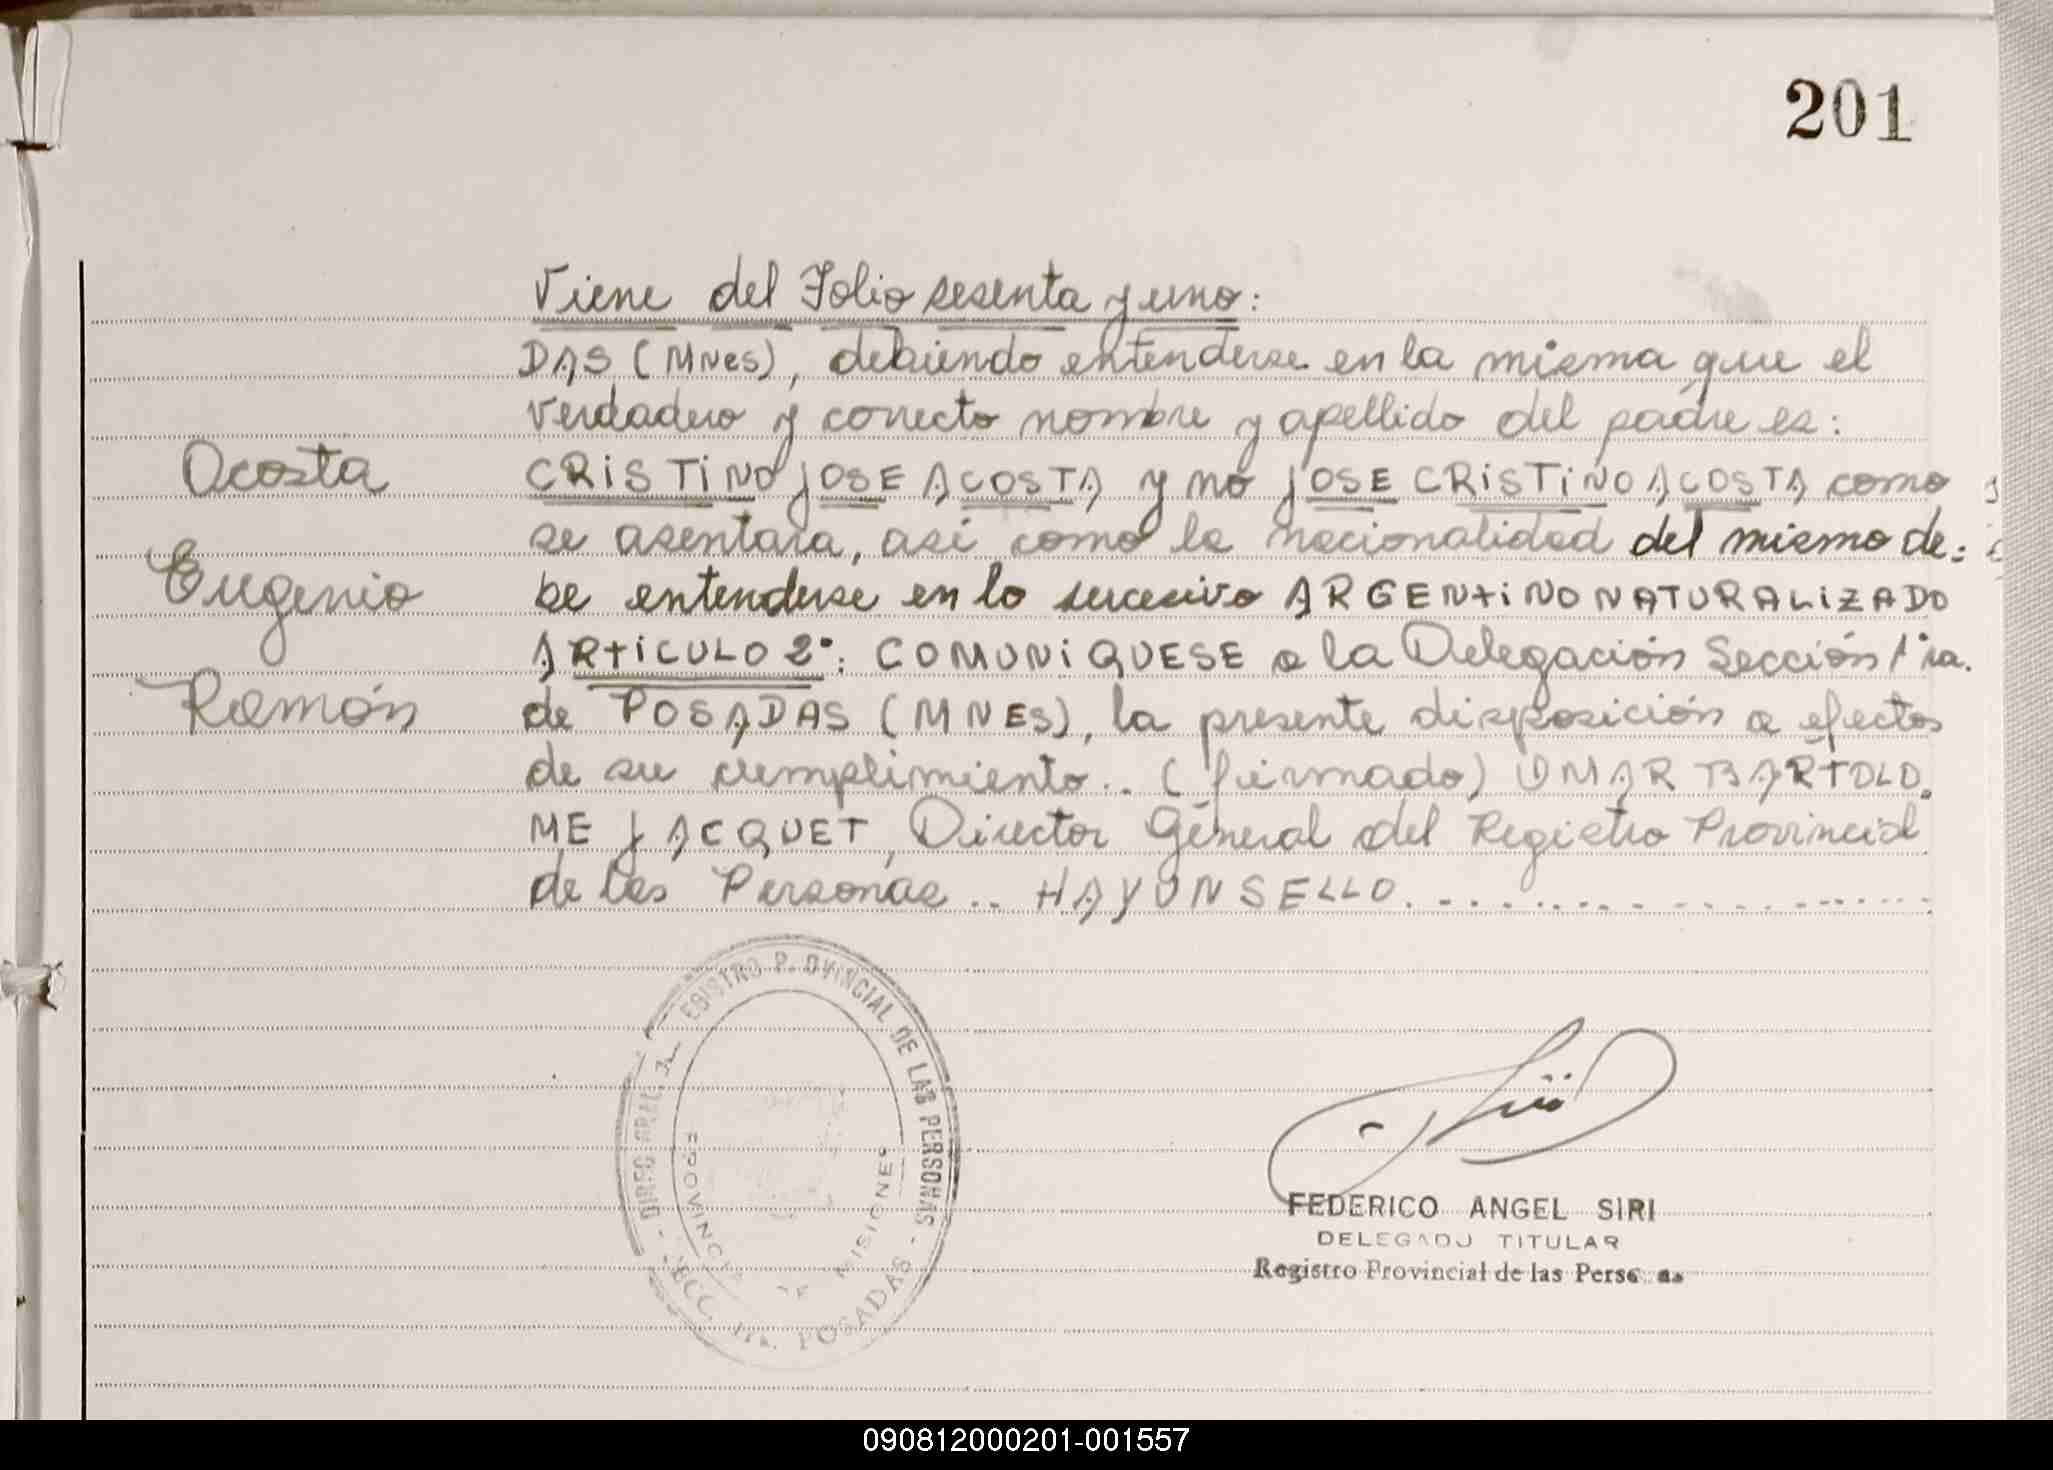 201
Viene del Folio sesenta y uno:
DAS (MNES), debiendo entenderse en la misma que el
verdadero y correcto nombre y apellido del padre es:
Acosta
CRISTINO JOSE ACOSTA y no JOSE CRISTINO ACOSTA como
se asentara, así como la nacionalidad del mismo de=
Eugenio
be entenderse en lo sucesivo ARGENTINO NATURALIZADO
ARTICULO 2°: COMUNIQUESE a la Delegación Sección 1ra.
Ramón
de POSADAS (MNES), la presente disposición a efectos
de su cumplimiento.. (firmado) OMAR BARTOLO.
ME JACQUET, Director General del Registro Provincial
de las Personas.. HAY UN SELLO.
DIREC. GRAL. EGISTRO P. OVINCIAL DE LAS PERSONAS -
PROVINCIA DE MISIONES
SECC. 1ra. POSADAS -
FEDERICO ANGEL SIRI
DELEGADO TITULAR
Registro Provincial de las Perso as
090812000201-001557